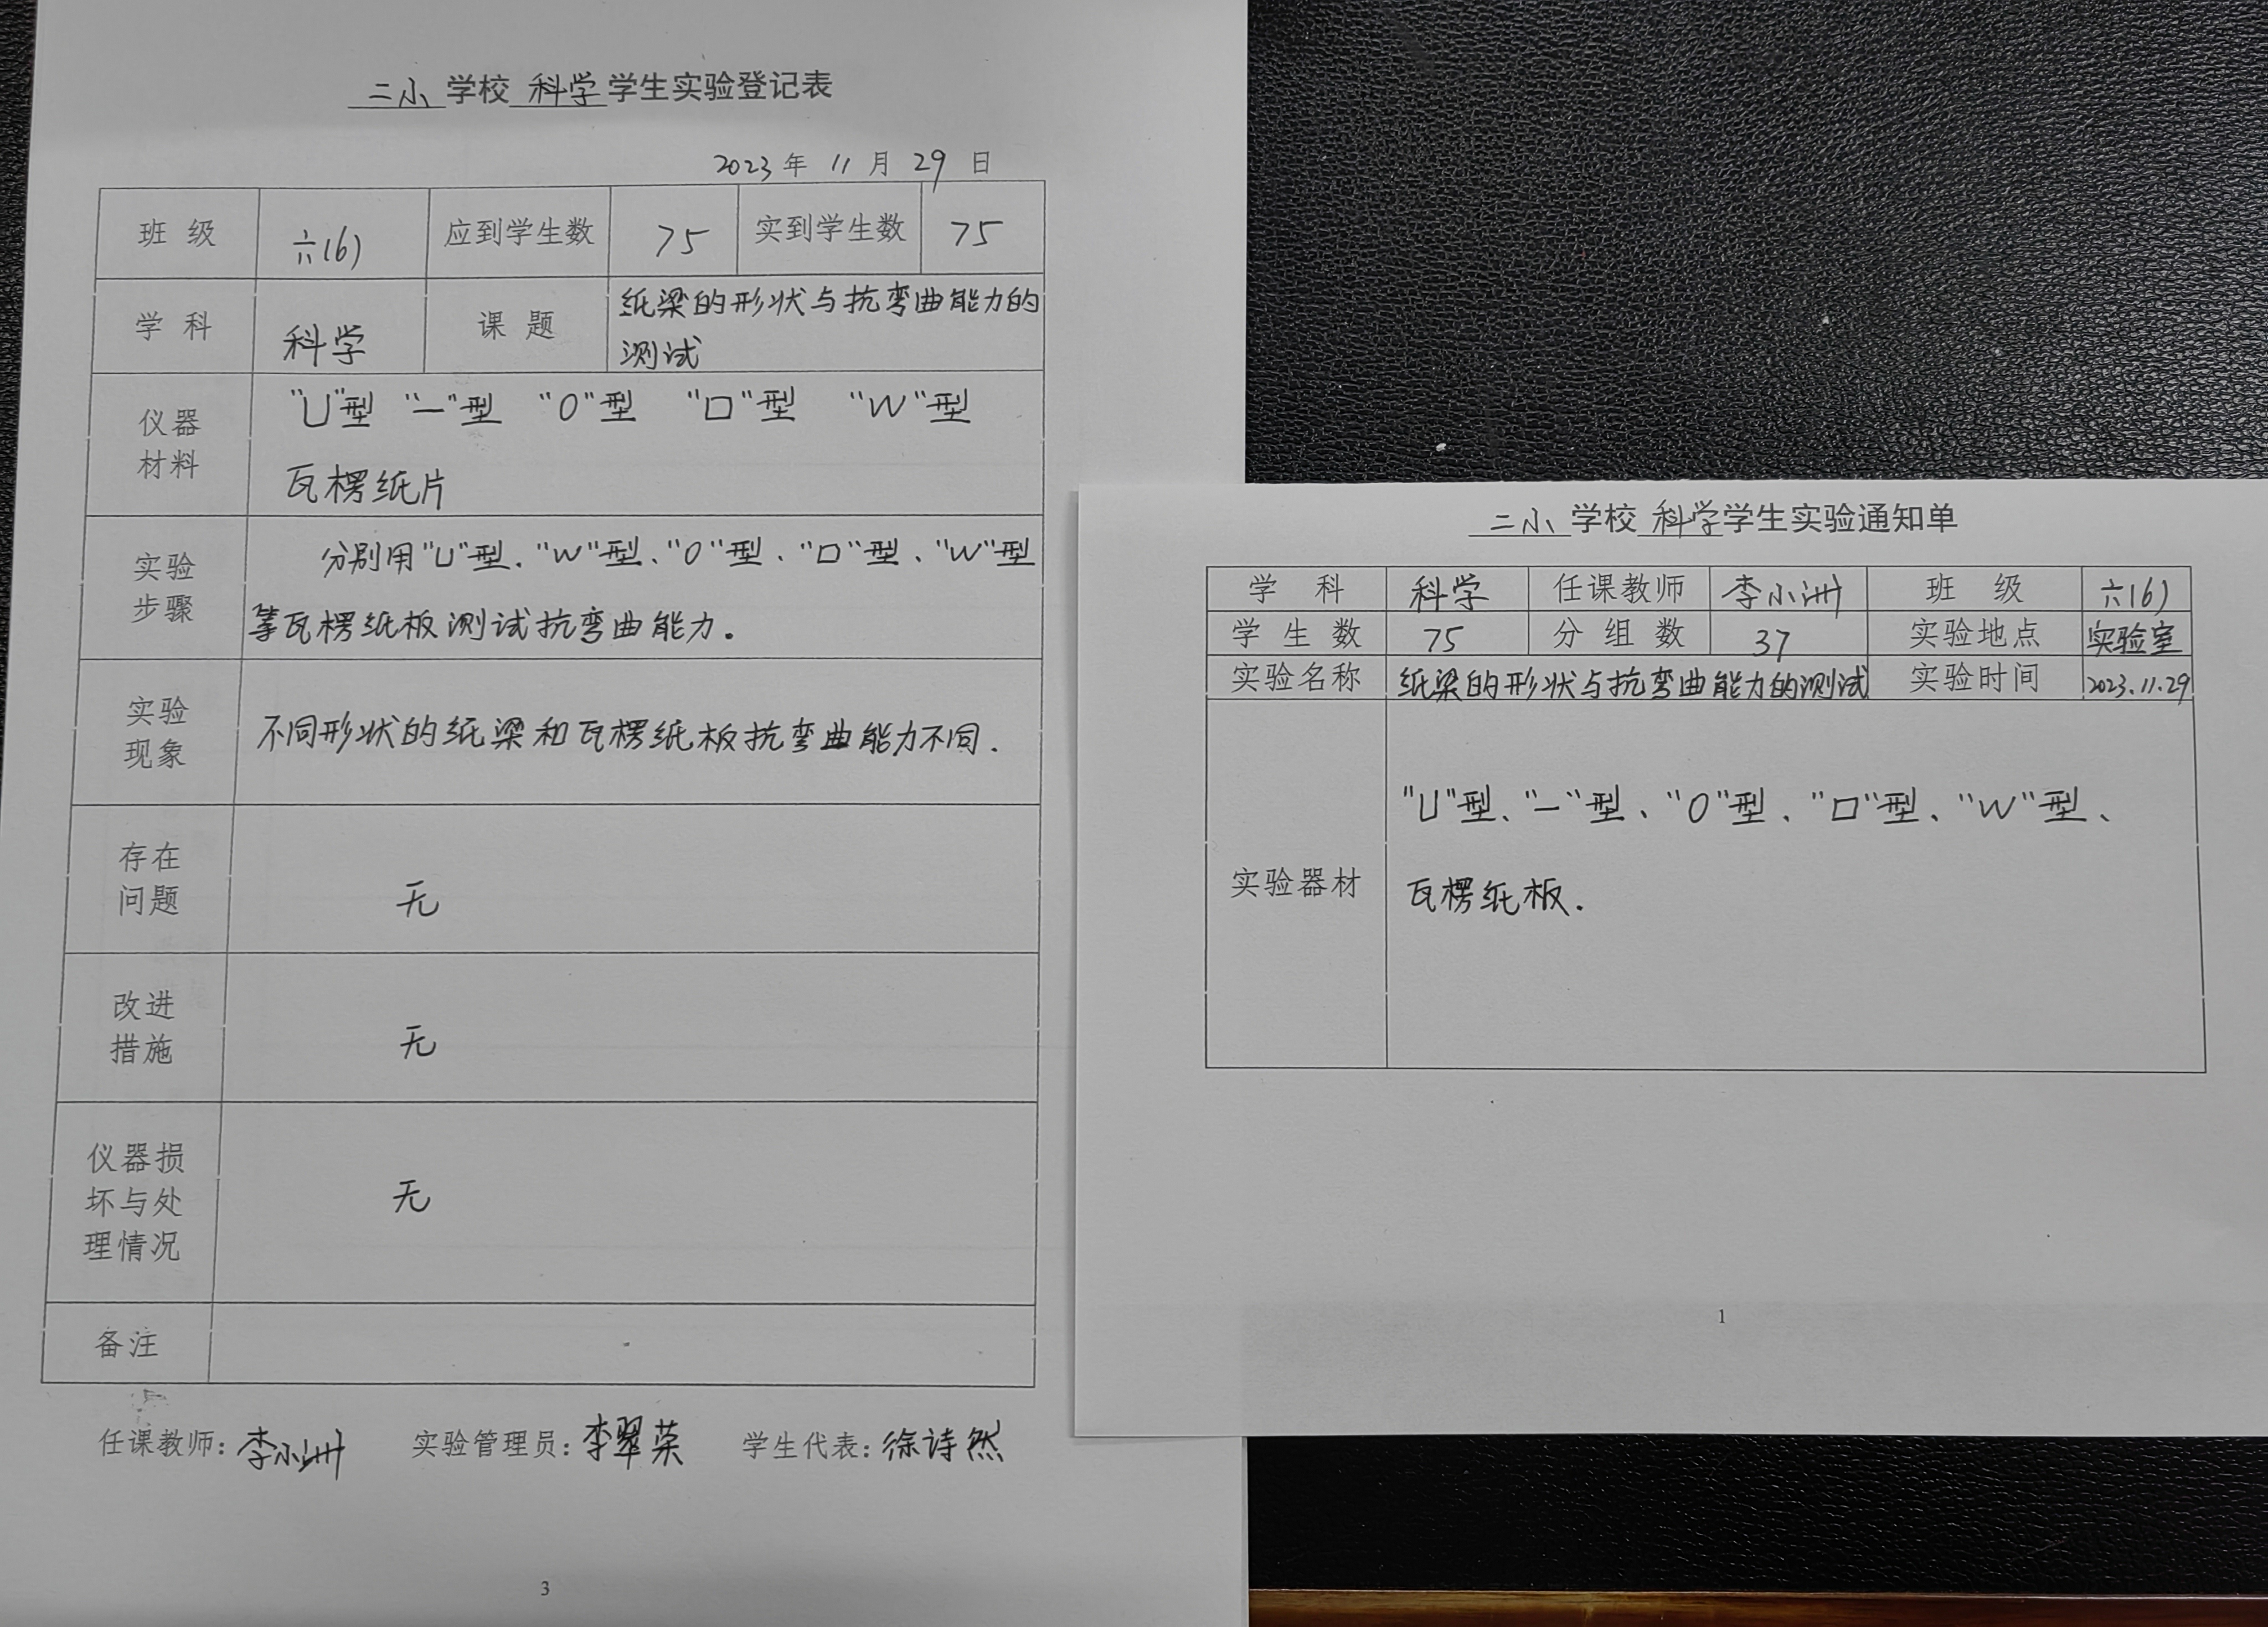 二小 学校 科学 学生实验登记表
2023 年 11 月 29 日
班 级 六(6) 应到学生数 75 实到学生数 75
学 科 科学 课 题 纸梁的形状与抗弯曲能力的
测试
仪器
材料
"U"型 "一"型 "O"型 "口"型 "W"型
瓦楞纸片
实验
步骤
分别用"U"型、"W"型、"O"型、"口"型、"W"型
等瓦楞纸板测试抗弯曲能力。
实验
现象
不同形状的纸梁和瓦楞纸板抗弯曲能力不同.
存在
问题
无
改进
措施
无
仪器损
坏与处
理情况
无
备注
任课教师: 李小洲 实验管理员: 李翠荣 学生代表: 徐诗然
3
二小 学校 科学 学生实验通知单
学 科 科学 任课教师 李小洲 班 级 六(6)
学 生 数 75 分 组 数 37 实验地点 实验室
实验名称 纸梁的形状与抗弯曲能力的测试 实验时间 2023.11.29
实验器材
"U"型、"一"型、"O"型、"口"型、"W"型、
瓦楞纸板.
1